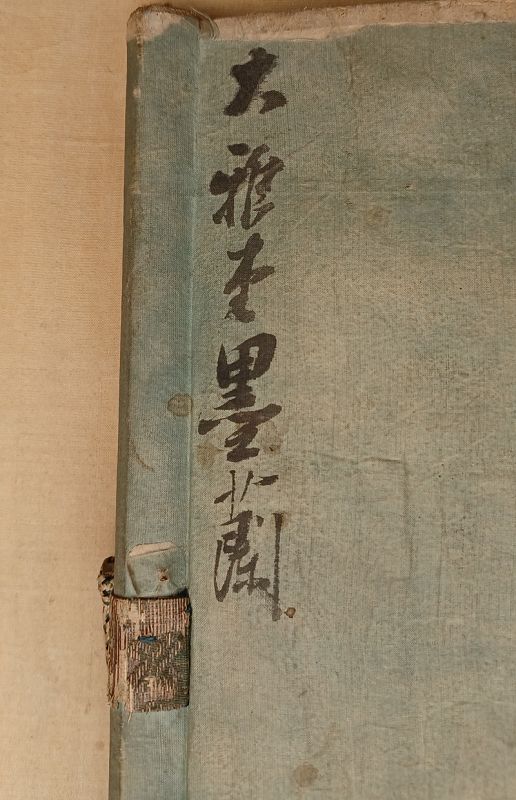 大雅堂墨蘭